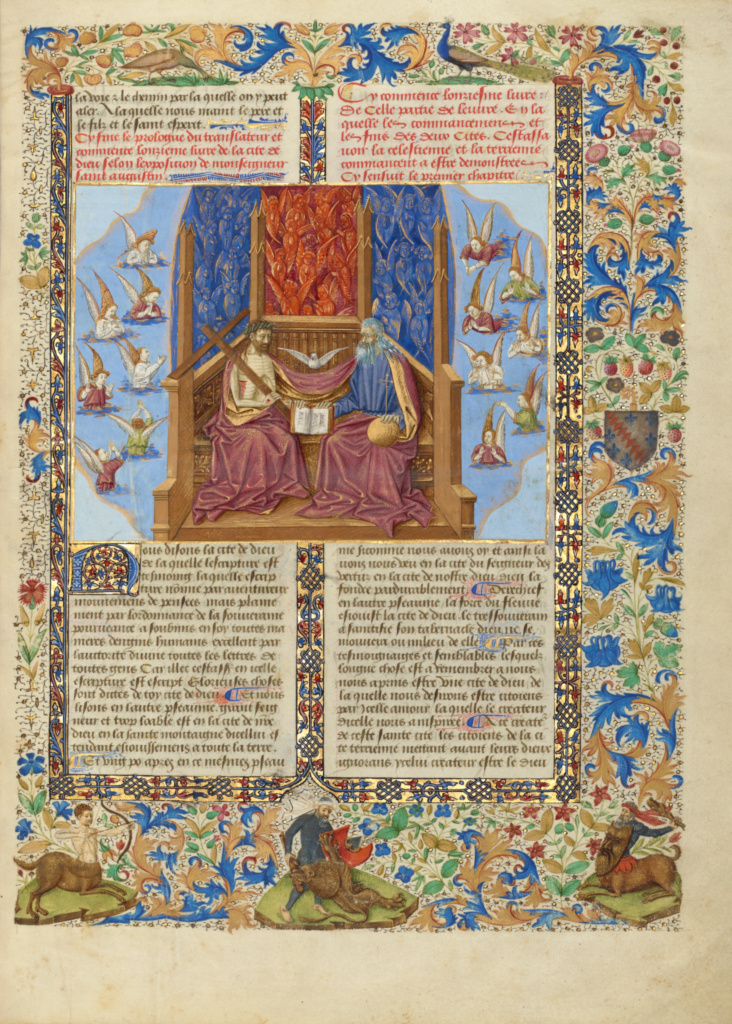 la voie & le chemin par la quelle on y peut
aler. A la quelle nous maint le pere et
le filz et le saint esperit.
Cy fine le prologue du translateur et
commence lonzieme livre de la cite de
dieu selon lexposition de monseigneur
saint augustin.
Cy commence lonziesme livre
De celle partie de leuvre. En la
quelle les commancemens et
les fins des deux cites. Cestassa
voir la celestienne et la terrienne
commancent a estre demonstrees
Cy sensuit le premier chapitre.
Nous disons la cite de dieu
de la quelle lescripture est
tesmoing la quelle escrip
ture nomme par aventureux
mouvemens de pensees mais plaine
ment par lordonnance de la souveraine
pourveance a soubmis en soy toutes ma
nieres dengins humains excellent par
lauctorite divine toutes les lettres de
toutes gens Car illec cestassavoir en icelle
escripture est escript Glorieuses choses
sont dictes de toy cite de dieu Et nous
lisons en lautre pseaume grant seig
neur et trop loable est en la cite de nre
dieu en la sainte montaigne dicellui es
tendant esjouissemens a toute la terre.
Et ung po apres en ce mesmes pseau
me sicomme nous avons oy et ainsi la
vons nous veu en la cite du seigneur des
vertus en la cite de nostre dieu dieu la
fonde pardurablement Derechief
en lautre pseaume la force du fleuve
esjouist la cite de dieu. le tressouverain
a saintifie son tabernacle dieu ne se
mouvera ou milieu de elle Par ces
tesmoignaiges et semblables lesquelz
longue chose est a remembrer a nous
nous a prins estre une cite de dieu de
la quelle nous desirons estre citoiens
par icelle amour la quelle le createur
dicelle nous a inspiree De ce create
de ceste sainte cite les citoiens de la ci
te terrienne mettant avant leurs dieux
ignorans yceluy createur estre le dieu